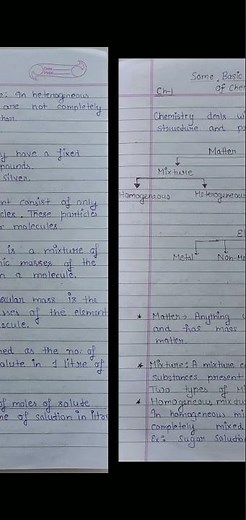 e: In heterogeneous
are not completely
tion.
y have a fixed
pounds.
silver.
nt consist of only
cles. These particles
r molecules.
is a mixture of
ic masses of the
n a molecule.
ecular mass is the
sses of the element
lecule.
ned as the no. of
olute in 1 litre of
of moles of solute
me of solution in litre
Some Basic
Ch-1 of Chem
Chemistry deals w
structure and p
Matter
Mixture
Homogeneous Heterogeneous
E
Metal Non-M
* Matter → Anything
and has mass
matter.
* Mixture: A mixture c
substances present
Two types of Mi
* Homogeneous mixtur
In homogeneous mi
completely mixed
Ex: Sugar Solution